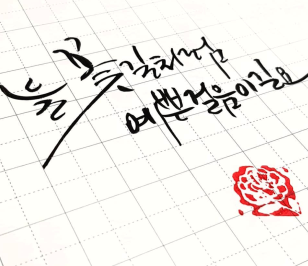 늘 꽃길처럼
예쁜 걸음이길요